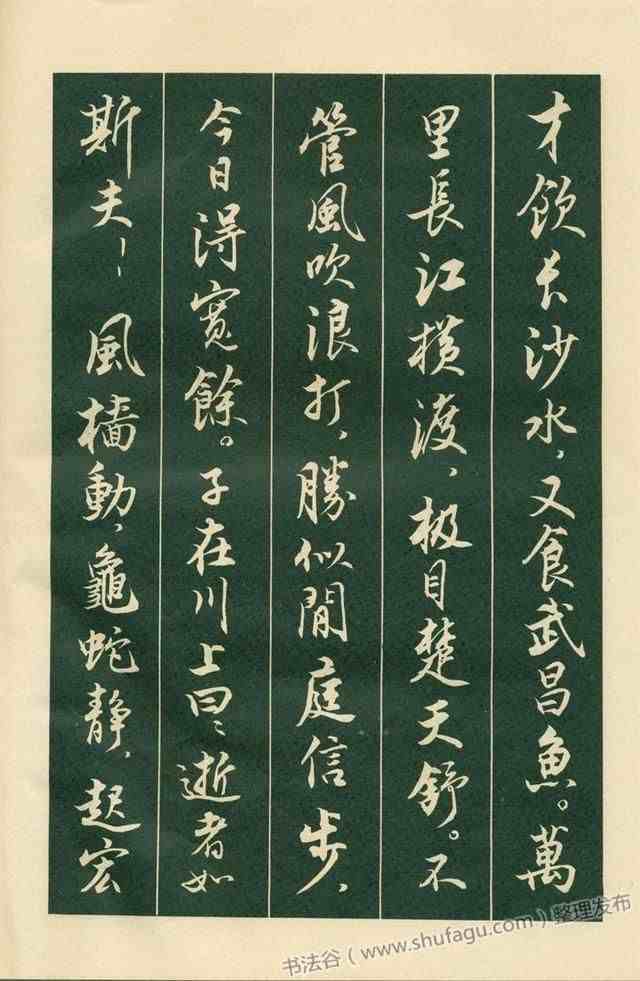 才飲长沙水，又食武昌魚。萬
里長江横渡，极目楚天舒。不
管風吹浪打，勝似閒庭信步，
今日得寬餘。子在川上曰：逝者如
斯夫！風檣動，龜蛇静，起宏
书法谷（www.shufagu.com）整理发布